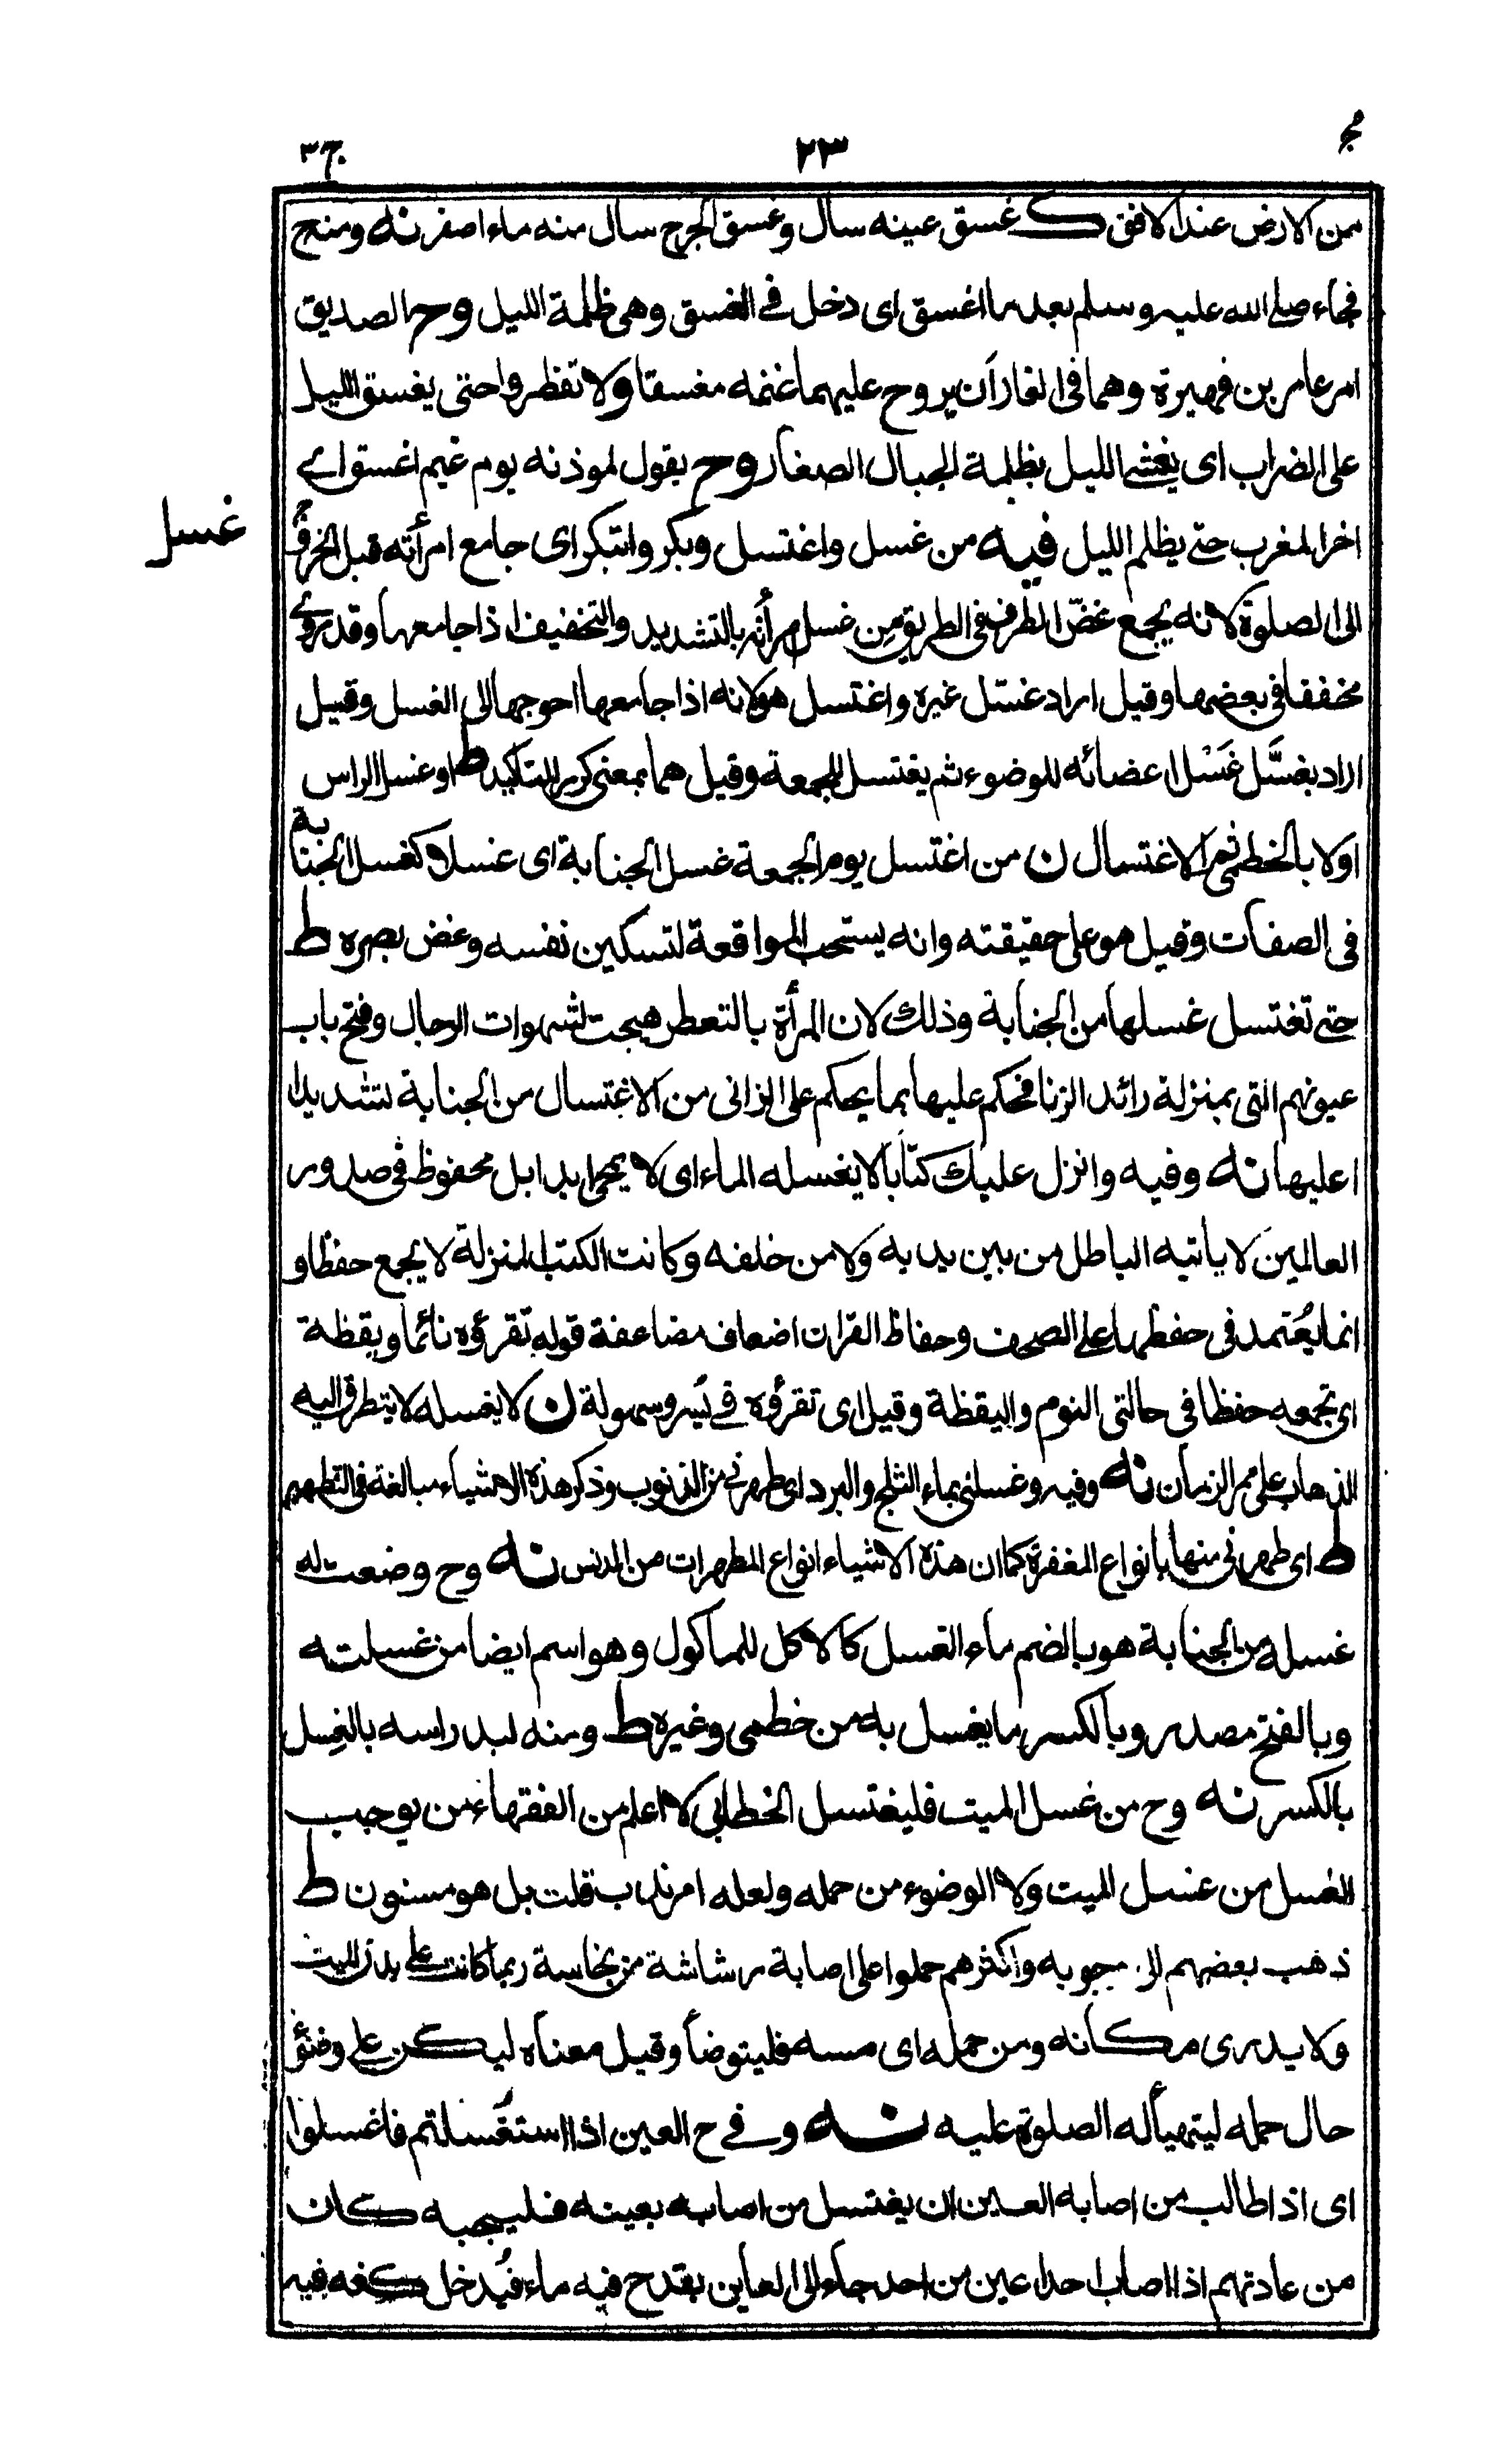 مج ٢٣ ج٣
من الارض عند الافق ك غسق عينه سال وغسق الجرح سال منه ماء اصفر نه ومنه ح
فجاء صلى الله عليه وسلم بعد ما اغسق اى دخل فى الغسق وهى ظلمة الليل وح الصديق
امر عامر بن فهيرة وهما فى الغار ان يروح عليهما غنمه مغسقا ولا تفطروا حتى يغسق الليل
على الضراب اى يغشى الليل بظلمة الجبال الصغار وح يقول لموذنه يوم غيم اغسق اے
اخر المغرب حتى يظلم الليل فيه من غسل واغتسل وبكر وابتكر اى جامع امرأته قبل الخروج
غسل
الى الصلوة لانه يجمع غضّ الطرف فى الطريق من غسل امرأته بالتشديد والتخفيف اذا جامعها وقد روے
مخففا فى بعضها وقيل اراد غسّل غيره واغتسل هو لانه اذا جامعها احوجها الى الغسل وقيل
اراد بغسَّل غَسْل اعضائه للوضوء ثم يغتسل للجمعة وقيل هما بمعنى كرر للتاكيد ط او غسل الراس
اولا بالخطمى ثم الاغتسال ن من اغتسل يوم الجمعة غسل الجنابة اى غسلا كغسل الجنابة
فى الصفات وقيل هو على حقيقته وانه يستحب المواقعة لتسكين نفسه وغض بصره ط
حتى تغتسل غسلها من الجنابة وذلك لان المرأة بالتعطر هيجت لشهوات الرجال وفتح باب
عيونهم التى بمنزلة رائد الزنا فحكم عليها بما يحكم على الزانى من الاغتسال من الجنابة تشديدا
عليها نه وفيه وانزل عليك كتابا لا يغسله الماء اى لا يمحى ابدا بل محفوظ فى صدور
العالمين لا ياتيه الباطل من بين يديه ولا من خلفه وكانت الكتب المنزلة لا يجمع حفظا و
انما يُعتمد فى حفظها على الصحف وحفاظ القران اضعاف مضاعفة قوله تقرؤه نائما ويقظة
اى تجمعه حفظا فى حالتى النوم واليقظة وقيل اى تقرؤه فى يُسر وسهولة ن لا يغسله لا يتطرق اليه
الذهاب على ممر الزمان نه وفيه وغسلنى بماء الثلج والبرد اى طهرنى من الذنوب وذكر هذه الاشياء مبالغة فى التطهير
ط اى طهرنى منها بانواع المغفرة كما ان هذه الاشياء انواع المطهرات من الدنس نه وح وضعت له
غسله من الجنابة هو بالضم ماء الغسل كالاكل للماكول وهو اسم ايضا من غسلته
وبالفتح مصدر وبالكسر ما يغسل به من خطمى وغيره ط ومنه لبد راسه بالغِسل
بالكسر نه وح من غسل الميت فليغتسل الخطابى لا اعلم من الفقهاء من يوجب
الغسل من غسل الميت ولا الوضوء من حمله ولعله امر ندب قلت بل هو مسنون ط
ذهب بعضهم الى وجوبه واكثرهم حملوا على اصابة رشاشة من نجاسة ربما كانت على بدن الميت
ولا يدرى مكانه ومن حمله اى مسه فليتوضأ وقيل معناه ليكن على وضوء
حال حمله ليتهيأ له الصلوة عليه نه وفے ح العين اذا استغسلتم فاغسلوا
اى اذا طالب من اصابه العين ان يغتسل من اصابه بعينه فليجبه كان
من عادتهم اذا اصاب احدا عين من احد جاء الى العاين بقدح فيه ماء فيُدخل كفه فيه